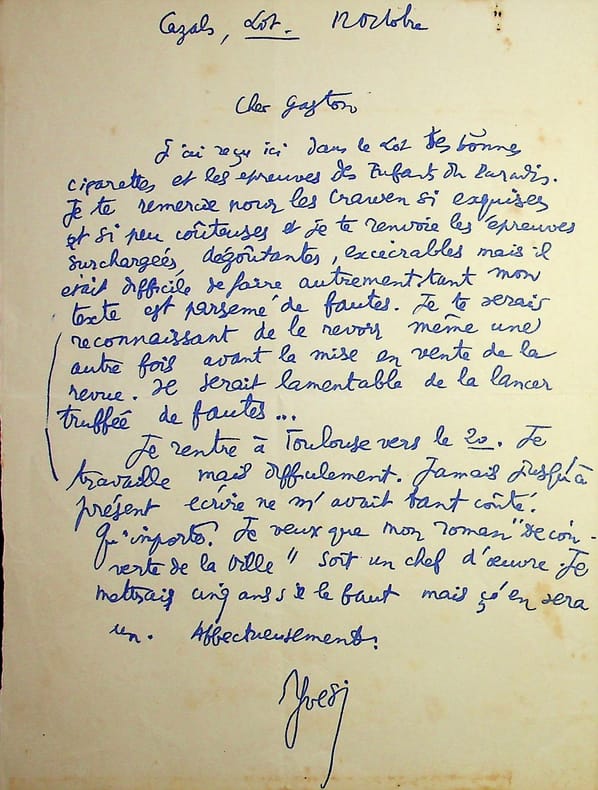 Cazals, Lot. 12 Octobre
Cher Gaston
J'ai reçu ici dans le Lot tes bonnes
cigarettes et les epreuves des Enfants du Paradis.
Je te remercie pour les Craven si exquises
et si peu coûteuses et je te renvoie les épreuves
surchargées, dégoûtantes, exécrables mais il
était difficile de faire autrement tant mon
texte est parsemé de fautes. Je te serais
reconnaissant de le revoir même une
autre fois avant la mise en vente de la
revue. Il serait lamentable de la lancer
truffée de fautes...
Je rentre à Toulouse vers le 20. Je
travaille mais difficilement. Jamais jusqu'à
présent écrire ne m'avait tant coûté.
Qu'importe? Je veux que mon roman "Décou-
verte de la Ville" soit un chef d'œuvre. Je
mettrais cinq ans s'il le faut mais ç'en sera
un. Affectueusement.